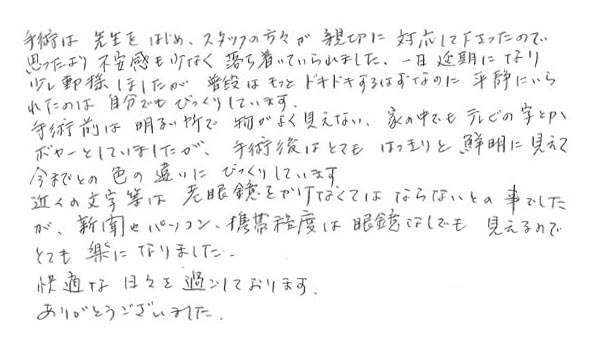 手術は 先生をはじめ、スタッフの方々が 親切に 対応して下さったので
思ったより 不安感も少なく 落ち着いていられました。一日延期になり
少し動揺しましたが 普段はもっとドキドキするはずなのに 平静にいら
れたのは 自分でもびっくりしています。
手術前は 明るい所で 物がよく見えない、家の中でも テレビの字とかが
ボヤーとしていましたが、手術後はとても はっきりと 鮮明に見えて
今までとの色の違いに びっくりしています
近くの文字等は 老眼鏡をかけなくてはならないとの事でした
が、新聞やパソコン、携帯程度は 眼鏡なしでも 見えるので
とても 楽に なりました。
快適な 日々を 過ごしております。
ありがとうございました。